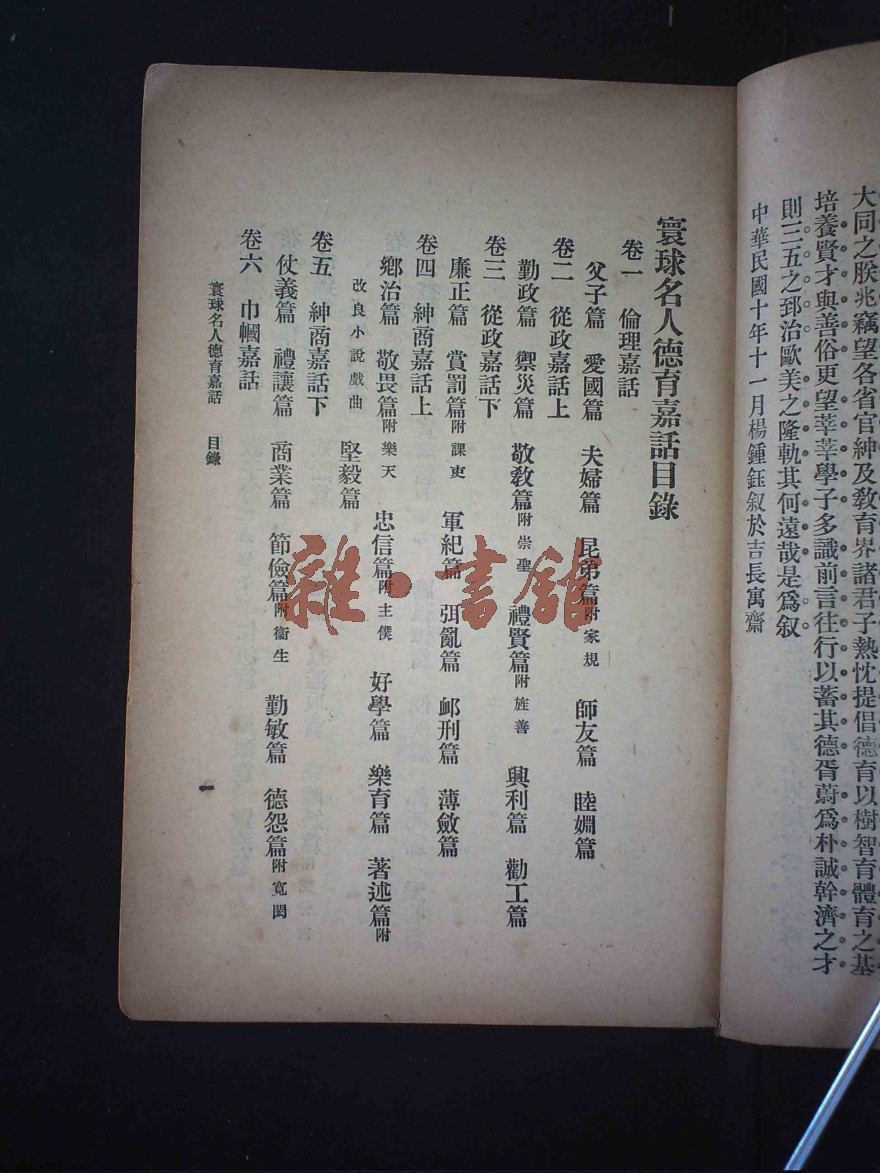 大同之朕兆竊望各省官紳及敎育界諸君子熱忱提倡德育以樹智育體育之基
培養賢才與善俗更望莘莘學子多識前言往行以蓄其德胥蔚爲朴誠幹濟之才
則三五之郅治歐美之隆軌其何遠哉是爲叙
中華民國十年十一月楊鍾鈺叙於吉長寓齋
寰球名人德育嘉話目錄
卷一 倫理嘉話
父子篇 愛國篇 夫婦篇 昆弟篇附家規 師友篇 睦婣篇
卷二 從政嘉話上
勤政篇 禦災篇 敬敎篇附崇聖 禮賢篇附旌善 興利篇 勸工篇
卷三 從政嘉話下
廉正篇 賞罰篇附課吏 軍紀篇 弭亂篇 邮刑篇 薄斂篇
卷四 紳商嘉話上
鄉治篇 敬畏篇附樂天 忠信篇附主僕 好學篇 樂育篇 著述篇附
改良小說戲曲 堅毅篇
卷五 紳商嘉話下
仗義篇 禮讓篇 商業篇 節儉篇附衞生 勤敏篇 德怨篇附寬閎
卷六 巾幗嘉話
寰球名人德育嘉話 目錄
一
雜·書館